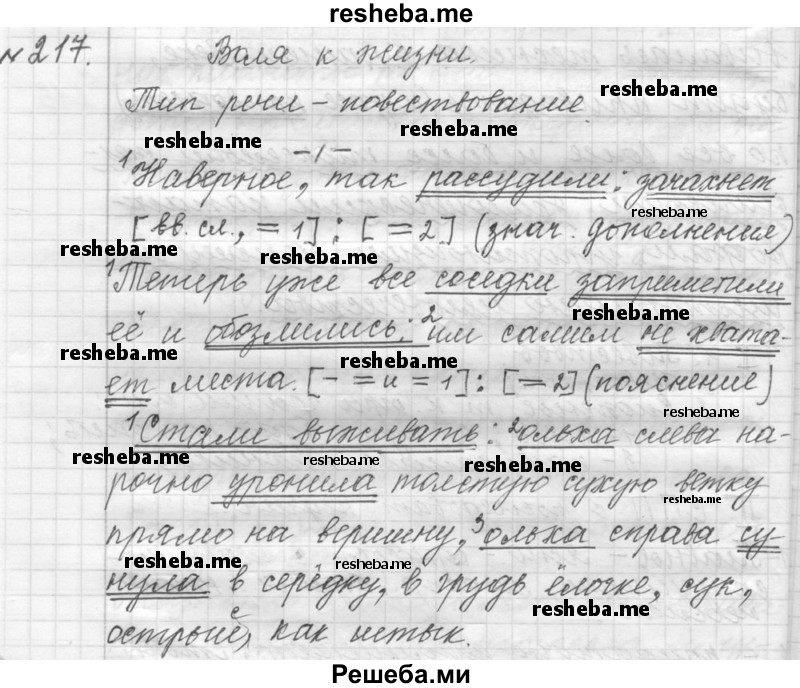 resheba.me
№217. Воля к жизни.
Тип речи – повествование.
resheba.me
resheba.me
resheba.me
1Наверное, так рассудили: зачахнет
resheba.me
[вв. сл., = 1] : [= 2] (знач. дополнения)
resheba.me
resheba.me
1Теперь уже все соседки заприметили
её и обозлились: 2им самим не хвата-
resheba.me
resheba.me
ет места. [– = и = 1] : [= 2] (пояснение)
resheba.me
1Стали выживать: 2ольха слева на-
resheba.me
resheba.me
resheba.me
рочно уронила толстую сухую ветку
resheba.me
прямо на вершину, 3ольха справа су-
resheba.me
resheba.me
нула в серёдку, в грудь ёлочке, сук,
resheba.me
острый, как штык.
Решеба.ми